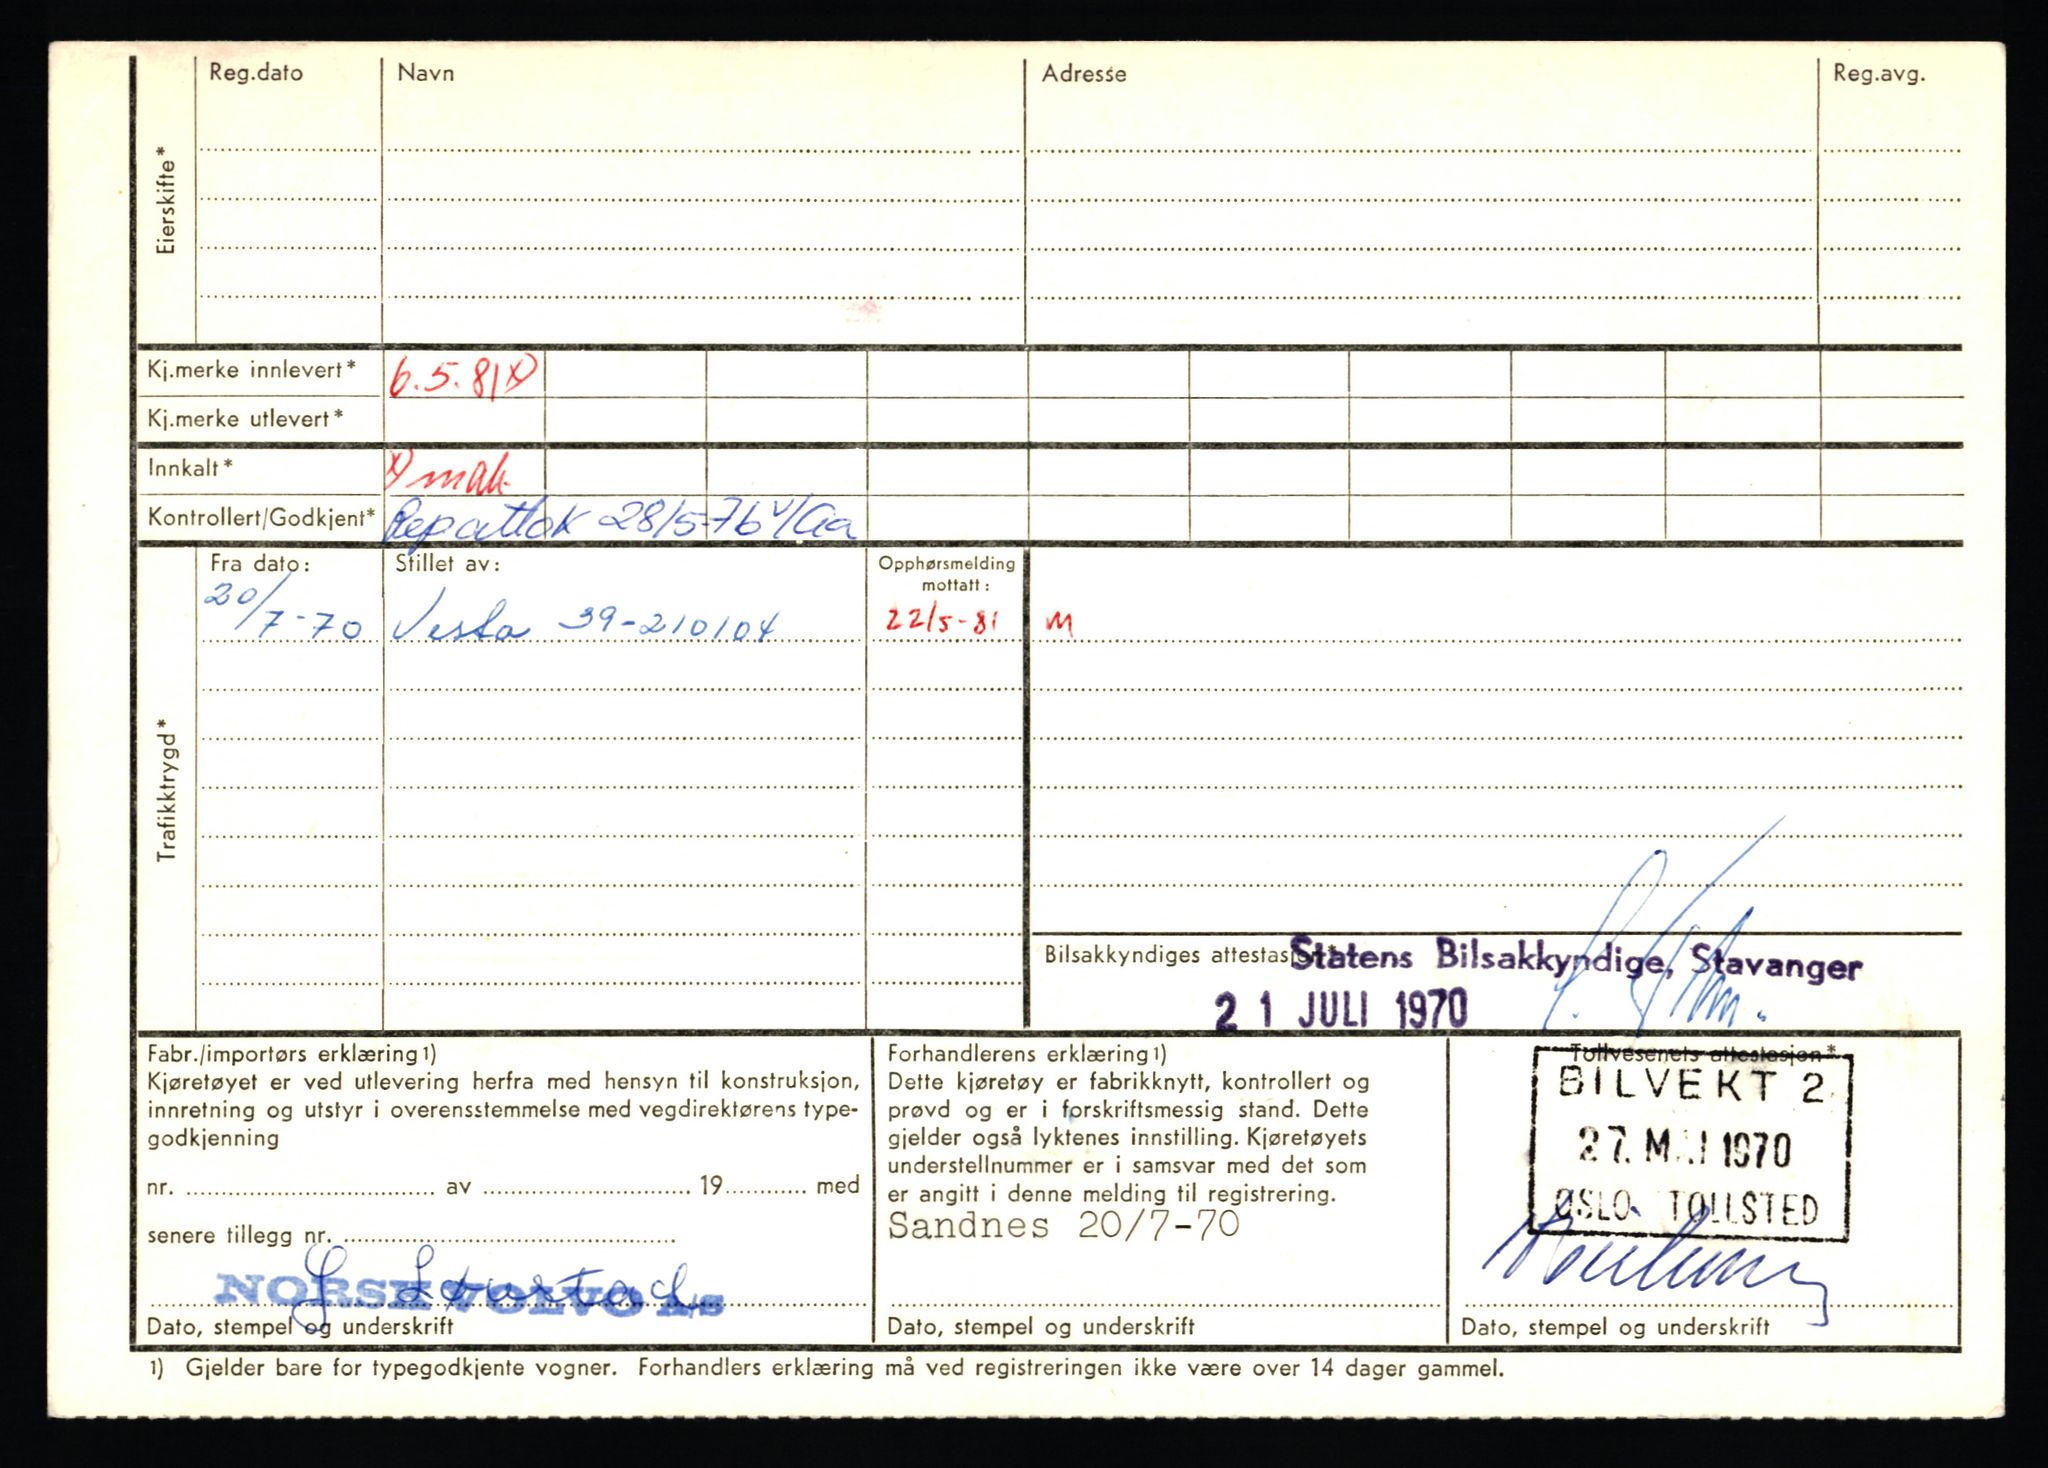 Reg.dato Navn Adresse Reg.avg.
Eierskifte*
Kj.merke innlevert* 6.5.81 x)
Kj.merke utlevert*
Innkalt* x) mak
Kontrollert/Godkjent* 28/5-76
Trafikktrygd*
Fra dato: Stillet av: Opphørsmelding
mottatt:
20/7-70 Vesta 39-210104 22/5-81 M
Bilsakkyndiges attestasjon*
Statens Bilsakkyndige, Stavanger
21 JULI 1970
Fabr./importørs erklæring1)
Kjøretøyet er ved utlevering herfra med hensyn til konstruksjon,
innretning og utstyr i overensstemmelse med vegdirektørens type-
godkjenning
nr. av 19 med
senere tillegg nr.
NORSK VOLVO A/S
Dato, stempel og underskrift
Forhandlerens erklæring1)
Dette kjøretøy er fabrikknytt, kontrollert og
prøvd og er i forskriftsmessig stand. Dette
gjelder også lyktenes innstilling. Kjøretøyets
understellnummer er i samsvar med det som
er angitt i denne melding til registrering.
Sandnes 20/7-70
Dato, stempel og underskrift
Tollvesenets attestasjon*
BILVEKT 2.
27. MAI 1970
OSLO TOLLSTED
Dato, stempel og underskrift
1) Gjelder bare for typegodkjente vogner. Forhandlers erklæring må ved registreringen ikke være over 14 dager gammel.